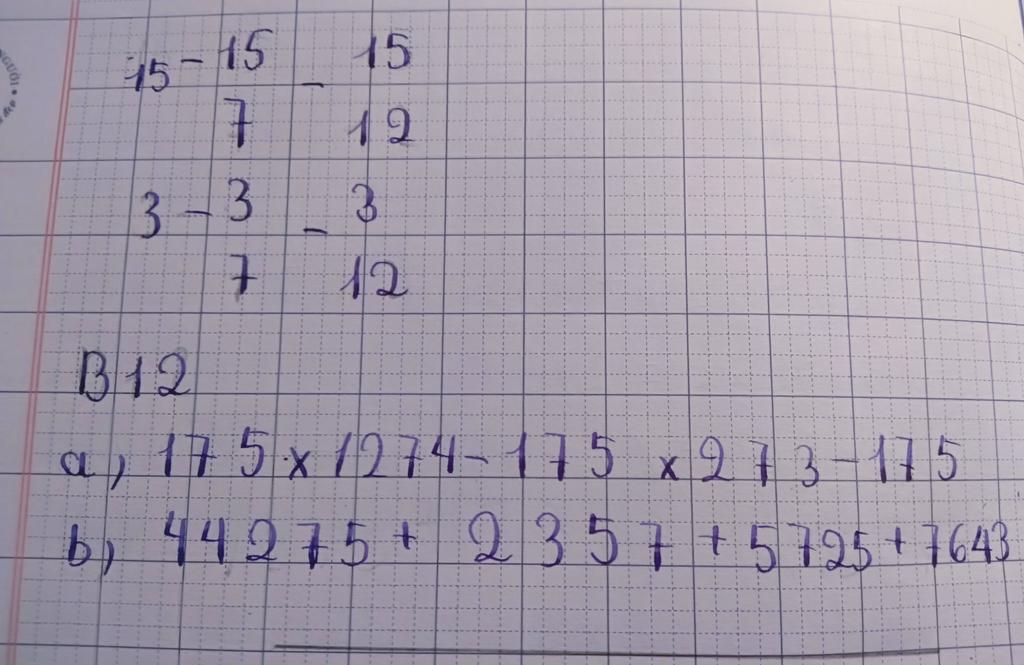 15 - 15 - 15
7 12
3 - 3 - 3
7 12
B12
a, 175 x 1274 - 175 x 273 - 175
b, 44275 + 2357 + 5725 + 7643